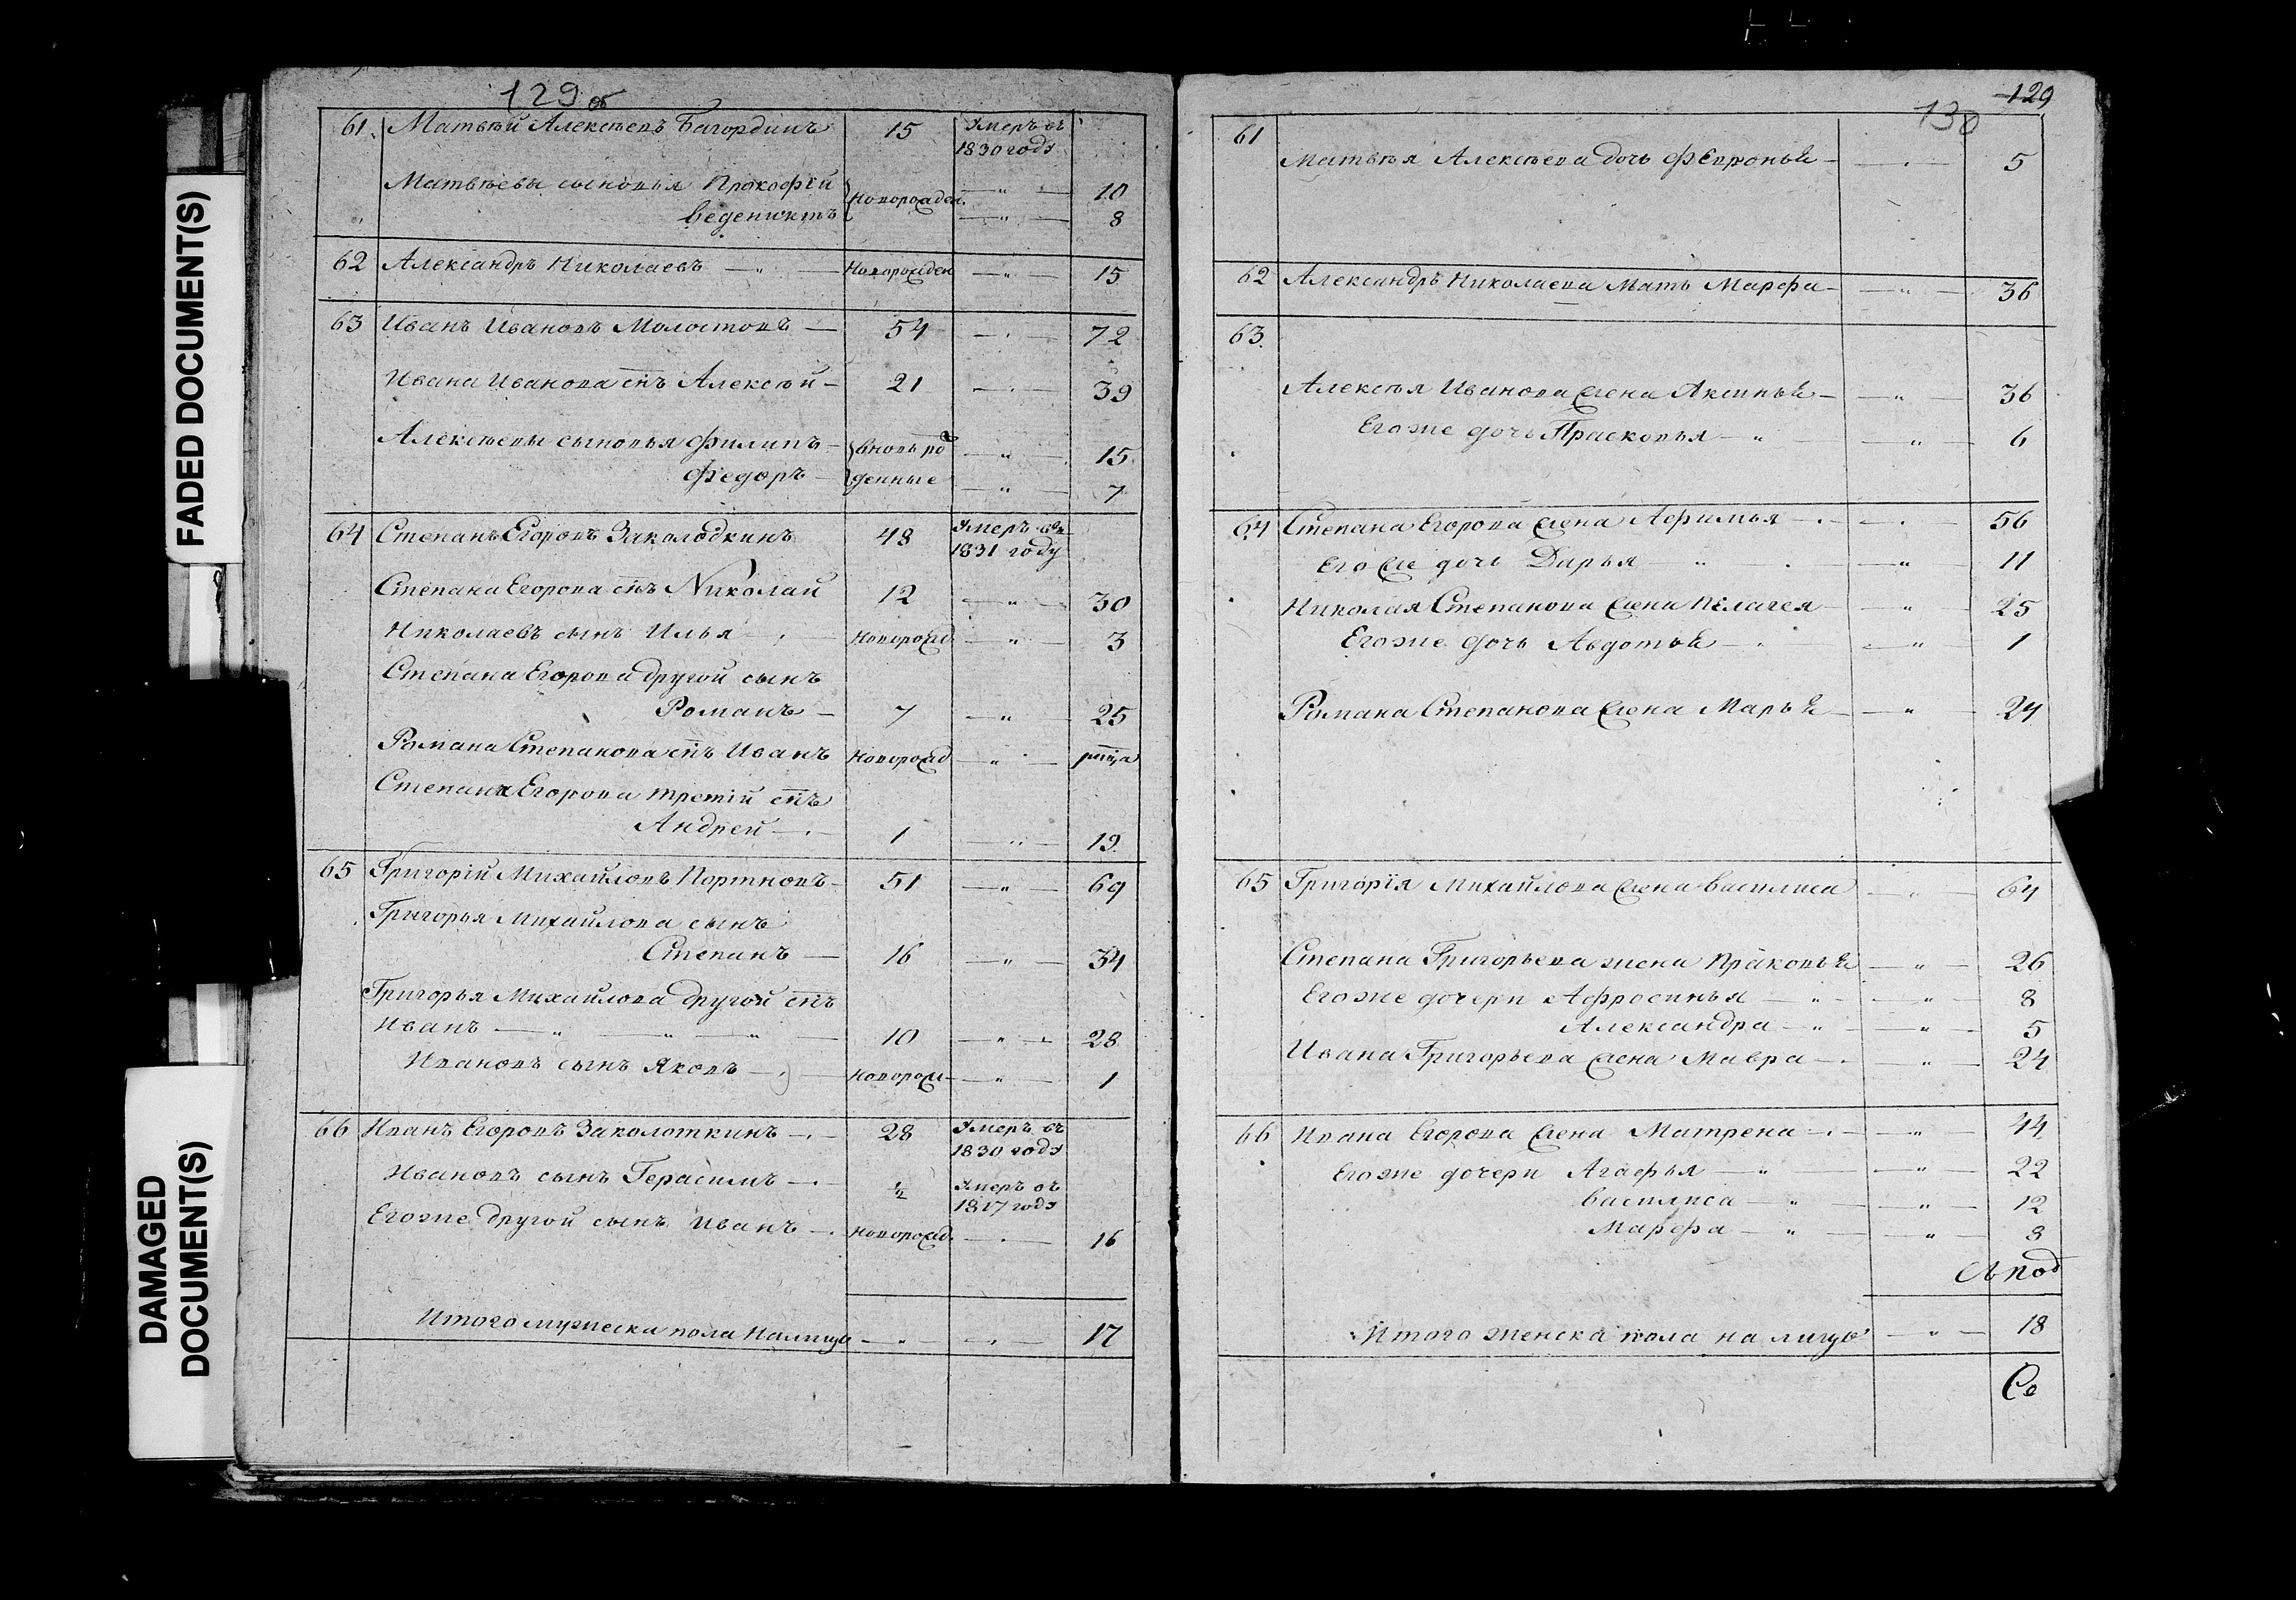 FADED DOCUMENT(S)
DAMAGED
DOCUMENT(S)
129 об
61. Матвей Алексеевъ Багордин 15 Умеръ въ
1830 году
Матвеевы сыновья Прокофей Новорожден. — " — 10
Веденихтъ — " — 8
62 Александръ Николаевъ — " — Новорожден — " — 15
63 Иванъ Ивановъ Молостовъ — 54 — " — 72
Ивана Иванова сĩъ Алексѣй — 21 — " — 39
Алексѣевы сыновья Филипъ — вновь ро — " — 15
Федоръ — денные — " — 7
64 Степанъ Егоровъ Заколодкинъ 48 Умеръ въ
1831 году
Степана Егорова сĩъ Николай 12 — " — 30
Николаевъ сынъ Илья — Новорожд — " — 3
Степана Егорова другой сынъ
Романъ — 7 — " — 25
Романа Степанова сĩъ Иванъ Новорожд — " —
Степана Егорова третій сĩъ
Андрей — 1 — " — 19
65 Григорій Михайловъ Портновъ — 51 — " — 69
Григорья Михайлова сынъ
Степанъ — 16 — " — 34
Григорья Михайлова другой сĩъ
Иванъ — " — " — " — 10 — " — 28
Ивановъ сынъ Яковъ —Новорож — " — 1
66 Иванъ Егоровъ Заколоткинъ — 28 Умеръ въ
1830 году
Ивановъ сынъ Герасимъ — ½ Умеръ въ
1817 году
Егоже другой сынъ Иванъ — Новорожд. — " — 16
Итого мужеска пола налицо — " — " — 17
129
130
61
Матвѣя Алексѣева дочь Февронья — " — 5
62 Александръ Николаева Мать Марфа — " — 36
63.
Алексѣя Иванова жена Аксинья — " — 36
Егоже дочь Прасковья — " — " — 6
64 Степана Егорова жена Афимья — " — 56
Его же дочь Дарья " — " — 11
Николая Степанова жена Пелагея — " — 25
Егоже дочь Авдотья — " — 1
Романа Степанова жена Марья — " — 24
65 Григорія Михайлова жена Василиса — " — 64
Степана Григорьева жена Праковья — " — 26
Егоже дочери Афросинья — " — " — 8
Александра — " — " — 5
Ивана Григорьева жена Мавра — " — 24
66 Ивана Егорова жена Матрена — " — 44
Егоже дочери Агафья — " — " — 22
Василиса " — " — 12
Марфа — " — " — 8
Итого женска пола на лицо — " — 18
Се